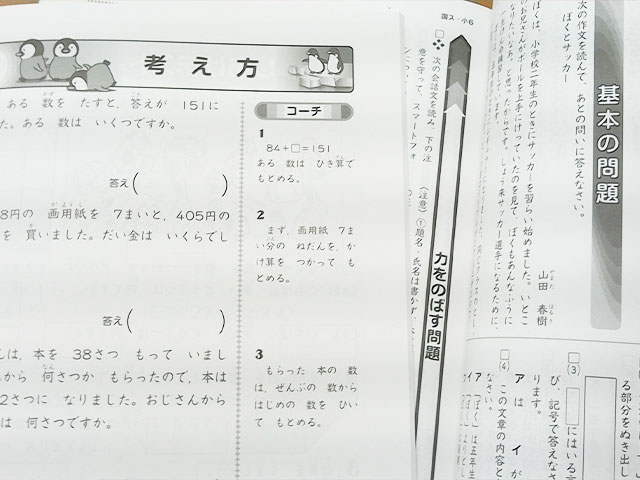 考え方
ある 数を たすと、答えが 151に
た。ある 数は いくつですか。
答え( )
8円の 画用紙を 7まいと、405円の
を 買いました。だい金は いくらでし
答え( )
は、本を 38さつ もって いまし
から 何さつか もらったので、本は
2さつに なりました。おじさんから
は 何さつですか。
コーチ
1
84+□=151
ある 数は ひき算で
もとめる。
2
まず、画用紙 7ま
い分の ねだんを、か
け算を つかって も
とめる。
3
もらった 本の 数
は、ぜんぶの 数から
はじめの 数を ひい
て もとめる。
国ス・小6
力をのばす問題
次の会話文を読み、下の注
意を守って、スマートフォ
(注意)①題名・氏名は書かず、
基本の問題
次の作文を読んで、あとの問いに答えなさい。
ぼくとサッカー
山田 春樹
ぼくは、小学校二年生のときにサッカーを習い始めました。いとこ
のお兄さんがボールを上手にけっていたのを見て、ぼくもあんなふうに
なりたいなあ、と思ったからです。しょう来サッカー選手になるために、
る部分をぬき出し
(3)
にはいる言
び、記号で答えなさ
ります。
ア は イ が
(4) この文章の内容と
なさい。